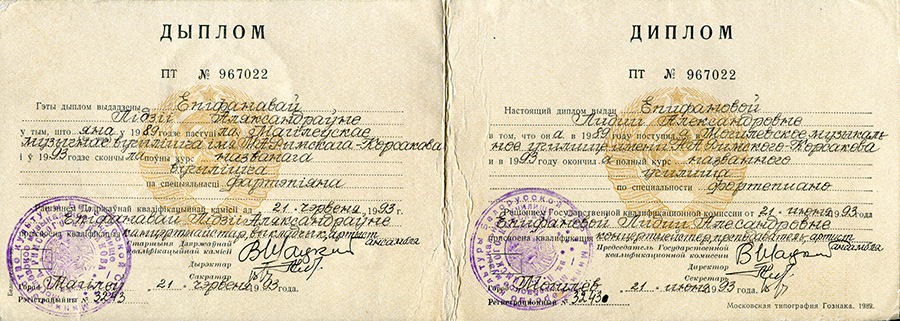 ДЫПЛОМ
ПТ № 967022
Гэты дыплом выдадзены Епифанавай
Лідзіі Аляксандраўне
у тым, што яна у 1989 годзе паступіла ў Магілёўскае
музычнае вучылішча імя М.А. Рымскага-Корсакова
і ў 1993 годзе скончыла поўны курс названага
вучылішча
па спецыяльнасці фартэпіяна
Рашэннем Дзяржаўнай кваліфікацыйнай камісіі ад 21 чэрвеня 1993 г.
Епифанавай Лідзіі Аляксандраўне
прысвоена кваліфікацыя канцэртмайстар, выкладчык, артыст
ансамбля
Старшыня Дзяржаўнай
кваліфікацыйнай камісіі
Дырэктар
Сакратар
Горад Магілёў 21 чэрвеня 1993 года.
Рэгістрацыйны № 3243
ДИПЛОМ
ПТ № 967022
Настоящий диплом выдан Епифановой
Лидии Александровне
в том, что она в 1989 году поступила в Могилевское музыкаль-
ное училище имени Н.А. Римского-Корсакова
и в 1993 году окончила полный курс названного
училища
по специальности фортепиано
Решением Государственной квалификационной комиссии от 21 июня 1993 года
Епифановой Лидии Александровне
присвоена квалификация концертмейстер, преподаватель, артист
ансамбля
Председатель Государственной
квалификационной комиссии
Директор
Секретарь
Город Могилев 21 июня 1993 года.
Регистрационный № 3243
Московская типография Гознака. 1989.